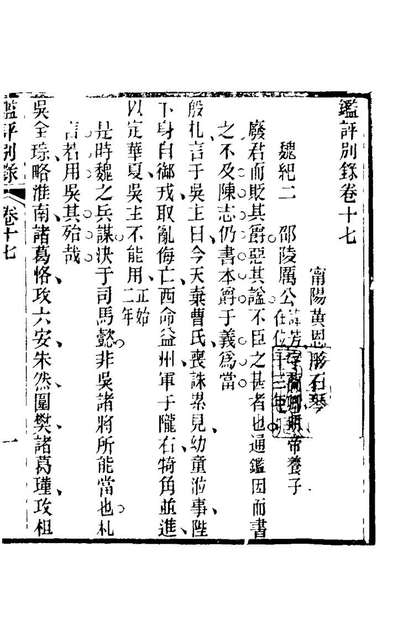 鑑評別錄卷十七
甯陽黃恩彤石琴
魏紀二　邵陵厲公諱芳字蘭卿明帝養子
在位十三年
廢君而貶其爵惡其謚不臣之甚者也通鑑因而書
之不及陳志仍書本爵于義爲當
殷札言于吳主曰今天棄曹氏喪誅累見幼童涖事陛
下身自御戎取亂侮亡西命益州軍于隴右犄角並進
以定華夏吳主不能用正始
二年
是時魏之兵謀決于司馬懿非吳諸將所能當也札
言若用吳其殆哉
吳全琮略淮南諸葛恪攻六安朱然圍樊諸葛瑾攻柤
鑑評別錄 卷十七 一